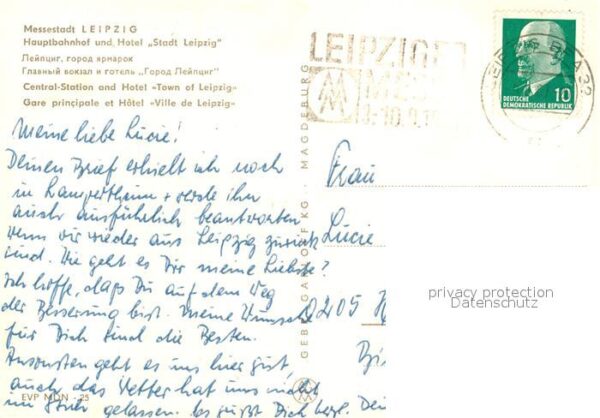 Messestadt LEIPZIG
Hauptbahnhof und Hotel „Stadt Leipzig"
Лейпциг, город ярмарок
Главный вокзал и готель „Город Лейпциг"
Central-Station and Hotel «Town of Leipzig»
Gare principale et Hôtel «Ville de Leipzig»
LEIPZIGE
DEUTSCHE
DEMOKRATISCHE REPUBLIK
10
MM
GEBR. GARLOFF KG · MAGDEBURG
Meine liebe Lucie!
Deinen Brief erhielt ich noch
in Lampertheim + werde ihn
auch ausführlich beantworten
wenn wir wieder aus Leipzig zurück
sind. Wie geht es Dir meine Liebste?
Ich hoffe, daß Du auf dem Weg
der Besserung bist. Meine Wünsche
für Dich sind die Besten.
Ansonsten geht es uns hier gut,
auch das Wetter hat uns nicht
im Stich gelassen. Es grüßt Dich
EVP MDN -.25
Frau
Lucie
privacy protection
Datenschutz